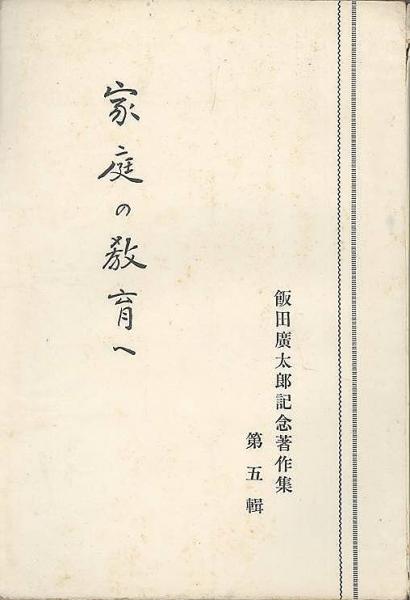 飯田廣太郎記念著作集
第五輯
家庭の教育へ